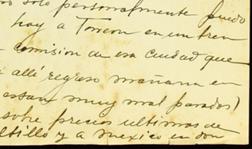 solo personalmente puedo
hoy a Torreon en un tren
comision de esa ciudad que
alli regreso mañana en
estan muy mal parados)
sobre precios ultimos de
y a Mexico en don